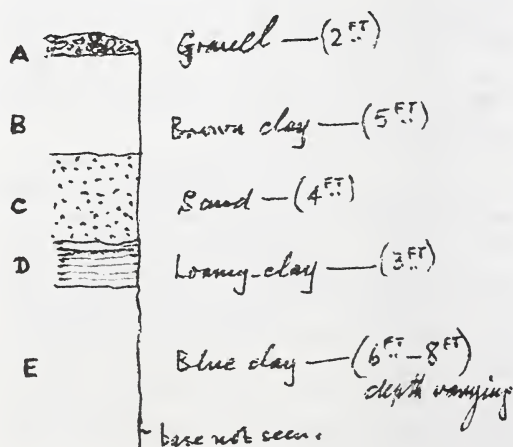 A Gravell — (2 FT)
B Brown clay — (5 FT)
C Sand — (4 FT)
D Loamy-clay — (3 FT)
E Blue clay — (6 FT – 8 FT)
depth varying
base not seen.